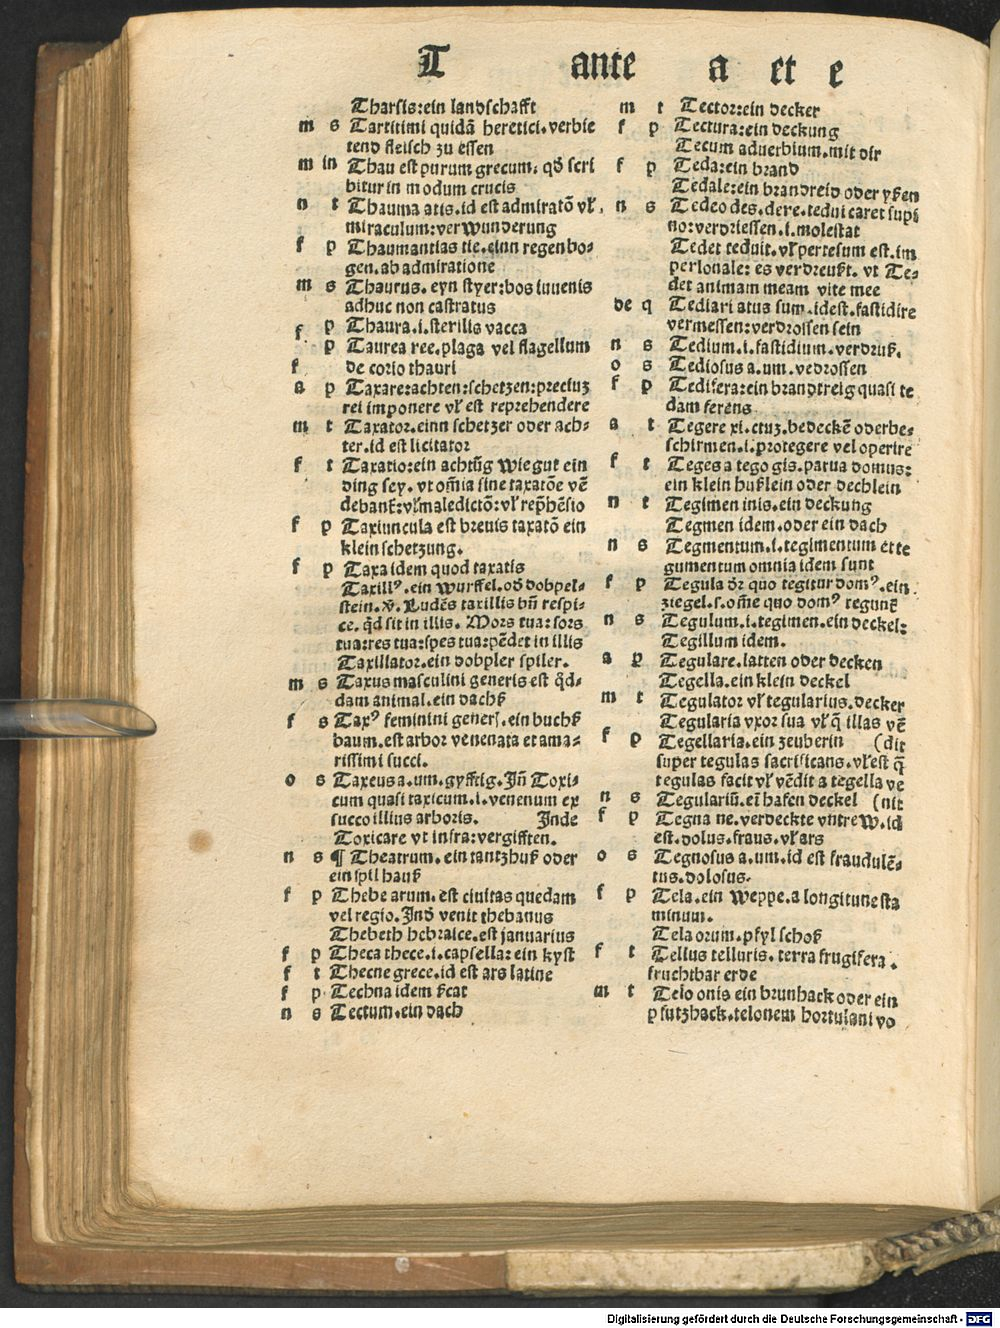 T ante a et e
Tharsis:ein landschafft
m s Tartitimi quidā heretici.verbie
tend fleisch zu essen
m in Thau est purum grecum: qđ scri
bitur in modum crucis
n t Thauma atis.id est admiratō vl̓
miraculum:verwunderung
f p Thaumantias tie.einn regenbo-
gen.ab admiratione
m s Thaurus. eyn styer:bos iuuenis
adhuc non castratus
f p Thaura.i.sterilis vacca
f p Taurea ree.plaga vel flagellum
de corio thauri
a p Taxare:achten:schetzen:preciuz
rei imponere vl̓ est reprehendere
m t Taxator.einn schetzer oder ach-
ter.id est licitator
f t Taxatio:ein achtūg wie gut ein
ding sey. vt om̄ia sine taxatōe vē
debant̄:vl̓maledictō:vl̓ rep̄hēsio
f p Taxiuncula est breuis taxatō ein
klein schetzung.
f p Taxa idem quod taxatis
Taxillꝰ.ein wurffel.od̓ dobpel-
stein.v̓. Ludēs taxillis bn̄ respi-
ce.qd̄ sit in illis. Mors tua:sors
tua:res tua:spes tua:pēdet in illis
Taxillator.ein dobpler spiler.
m s Taxus masculini generis est qd̄-
dam animal.ein dachß
f s Taxꝰ feminini generꝭ.ein buchß
baum.est arbor venenata et ama-
rissimi succi.
o s Taxeus a.um.gyfftig.Jn̄ Toxi-
cum quasi taxicum.i.venenum ex
succo illius arboris. Jnde
Toxicare vt infra:vergifften.
n s ¶ Theatrum.ein tantzhuß oder
ein spil hauß
f p Thebe arum.est ciuitas quedam
vel regio.Jnd̓ venit thebanus
Thebeth hebraice.est januarius
f p Theca thece.i.capsella:ein kyst
f t Thecne grece.id est ars latine
f p Techna idem s̓cat
n s Tectum.ein dach
m t Tector:ein decker
f p Tectura:ein deckung
Tecum aduerbium.mit dir
f p Teda:ein brand
Tedale:ein brandreid oder yßen
n s Tedeo des.dere.tedui caret supi
no:verdriessen.i.molestat
Tedet teduit.vl̓pertesum est.im
personale: es verdreußt. vt Te-
det animam meam vite mee
de q Tediari atus sum.idest.fastidire
vermessen:verdrossen sein
n s Tedium.i.fastidium.verdruß.
o s Tediosus a.um.vedrossen
f p Tedifera:ein brandtreig quasi te
dam ferens
a t Tegere xi.ctuz.bedeckē oderbe-
schirmen.i.protegere vel operire
f t Teges a tego gis.parua domus:
ein klein hußlein oder dechlein
n t Tegimen inis.ein deckung
Tegmen idem.oder ein dach
n s Tegmentum.i.tegimentum et te
gumentum omnia idem sunt
f p Tegula dr̄ quo tegitur domꝰ.ein
ziegel.s.om̄e quo domꝰ tegunt̄
n s Tegulum.i.tegimen.ein deckel:
Tegillum idem.
a p Tegulare.latten oder decken
Tegella.ein klein deckel
m t Tegulator vl̓ tegularius.decker
Tegularia vxor sua vl̓ q̄ illas vē
f p Tegellaria.ein zeuberin (dit
super tegulas sacrificans.vl̓est q̄
tegulas facit vl̓ vēdit a tegella ve
n s Tegulariū.ei̅ hafen deckel (nit
f p Tegna ne.verdeckte vntrew.id
est.dolus.fraus.vl̓ ars
o s Tegnosus a.um.id est fraudulē-
tus.dolosus.
f p Tela.ein weppe.a longitune sta
minum.
Tela orum.pfyl schoß
f t Tellus telluris. terra frugifera.
fruchtbar erde
m t Telo onis ein brunhack oder ein
pfutzhack.telonem hortulani vo
Digitalisierung gefördert durch die Deutsche Forschungsgemeinschaft - DFG